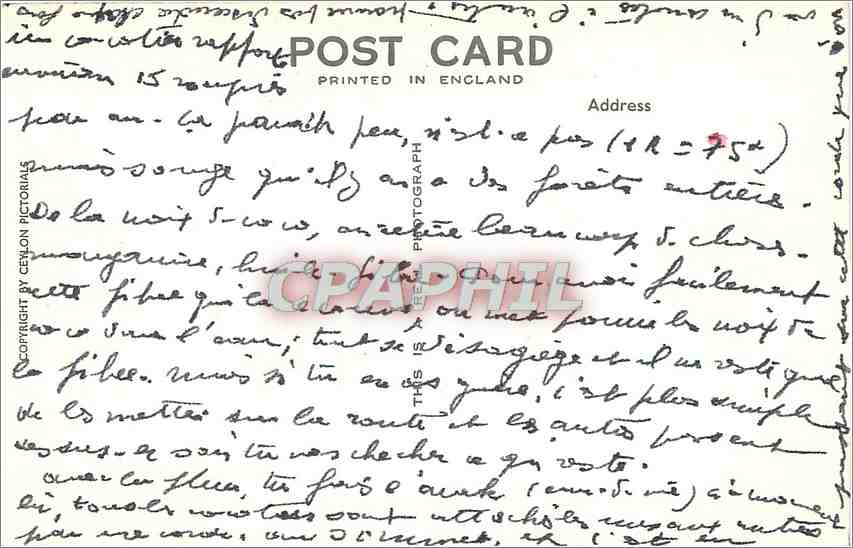 POST CARD
PRINTED IN ENGLAND
Address
COPYRIGHT BY CEYLON PICTORIALS
THIS IS A REAL PHOTOGRAPH
CPAPHIL
un cocotier rapporte
environ 15 roupies
par an. Ca paraît peu, n'est-ce pas (1R = 75
mais songe qu'il y en a des forêts entières.
De la noix de coco, on retire beaucoup de choses.
margarine, huile, fibre. Pour avoir facilement
cette fibre qui on met pourrir la noix de
coco dans l'eau; tout se désagrège et il ne reste que
la fibre. Mais si tu en as guère, c'est plus simple
de les mettre sur la route et les autos passent
dessus. le soir tu vas chercher ce qui reste.
avec la fleur, tu fais l'arak (eau-de-vie) à ce moment
là, tous les cocotiers sont attachés les uns aux autres
par une corde, et c'est en
passant sur cette corde que